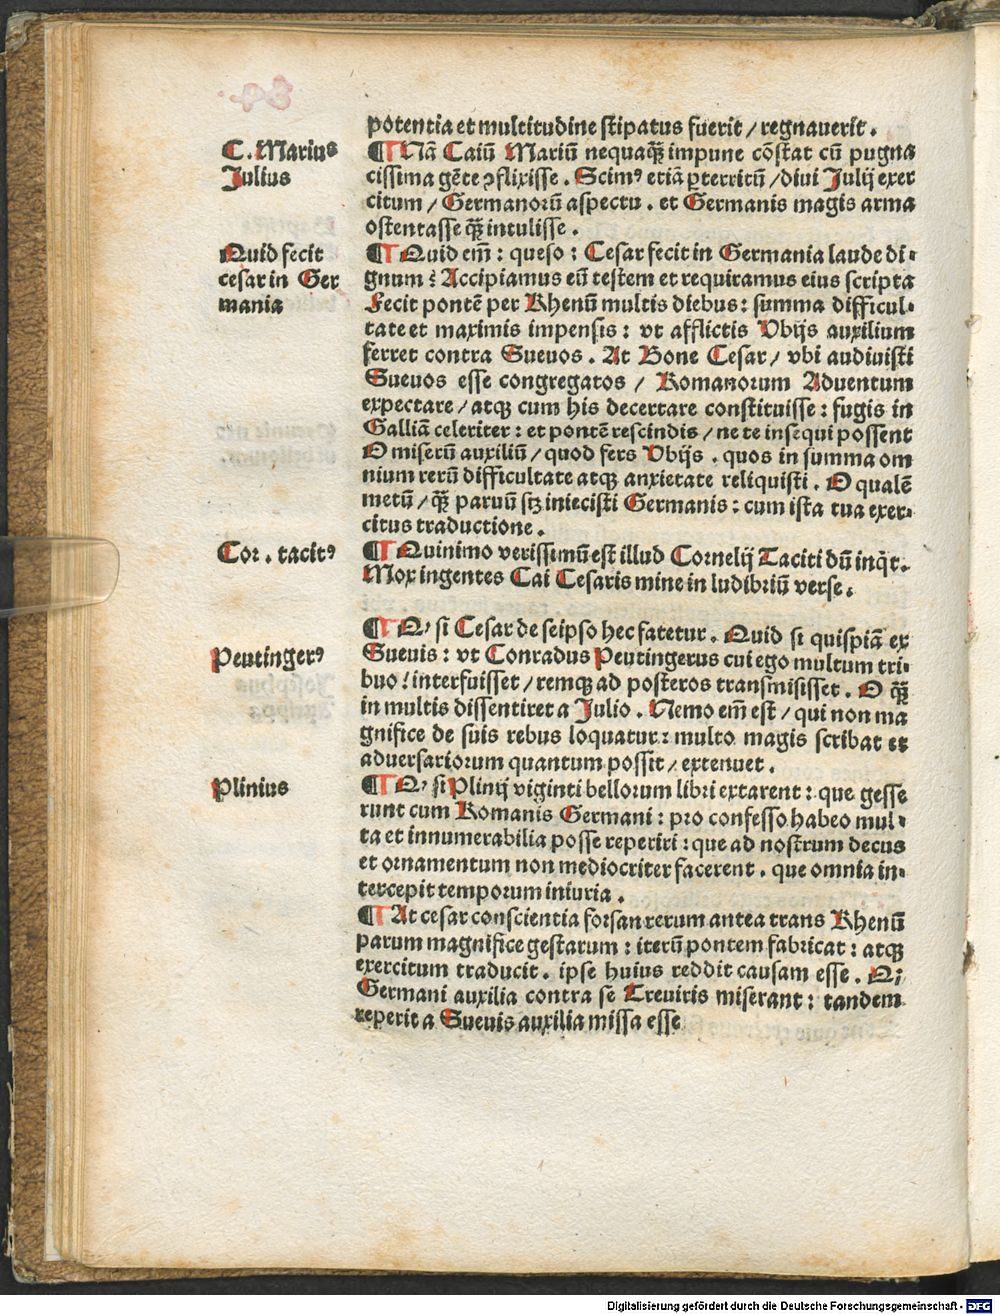 potentia et multitudine stipatus fuerit / regnauerit.
C. Marius
Julius
¶ Nã Caiũ Mariũ nequaꝙ̃ impune cõstat cũ pugna
cissima gẽte ↄflixisse. Scimꝰ etiã ꝑterritũ / diui Julij exer
citum / Germanorũ aspectu. et Germanis magis arma
ostentasse ꝙ̃ intulisse.
Quid fecit
cesar in Ger
mania
¶ Quid em̃: queso: Cesar fecit in Germania laude di-
gnum: Accipiamus eũ testem et requiramus eius scripta
Fecit pontẽ per Rhenũ multis diebus: summa difficul-
tate et maximis impensis: vt afflictis Vbijs auxilium
ferret contra Sueuos. At Bone Cesar / vbi audiuisti
Sueuos esse congregatos / Romanorum Aduentum
expectare / atqꝫ cum his decertare constituisse: fugis in
Galliã celeriter: et pontẽ rescindis / ne te insequi possent
O miserũ auxiliũ / quod fers Vbijs. quos in summa om
nium rerũ difficultate atqꝫ anxietate reliquisti. O qualẽ
metũ / ꝙ̃ paruũ sꝫ iniecisti Germanis: cum ista tua exer-
citus traductione.
Cor. tacitꝰ
¶ Quinimo verissimũ est illud Cornelij Taciti dũ inq̃t.
Mox ingentes Cai Cesaris mine in ludibriũ verse.
Peutingerꝰ
¶ Qꝫ si Cesar de seipso hec fatetur. Quid si quispiã ex
Sueuis: vt Conradus Peutingerus cui ego multum tri-
buo! interfuisset / remqꝫ ad posteros transmisisset. O ꝙ̃
in multis dissentiret a Julio. Nemo em̃ est / qui non ma
gnifice de suis rebus loquatur: multo magis scribat et
aduersariorum quantum possit / extenuet.
Plinius
¶ Qꝫ si Plinij viginti bellorum libri extarent: que gesse
runt cum Romanis Germani: pro confesso habeo mul-
ta et innumerabilia posse reperiri: que ad nostrum decus
et ornamentum non mediocriter facerent. que omnia in-
tercepit temporum iniuria.
¶ At cesar conscientia forsan rerum antea trans Rhenũ
parum magnifice gestarum: iterũ pontem fabricat: atqꝫ
exercitum traducit. ipse huius reddit causam esse. Qꝫ
Germani auxilia contra se Treuiris miserant: tandem
reperit a Sueuis auxilia missa esse
Digitalisierung gefördert durch die Deutsche Forschungsgemeinschaft - DFG